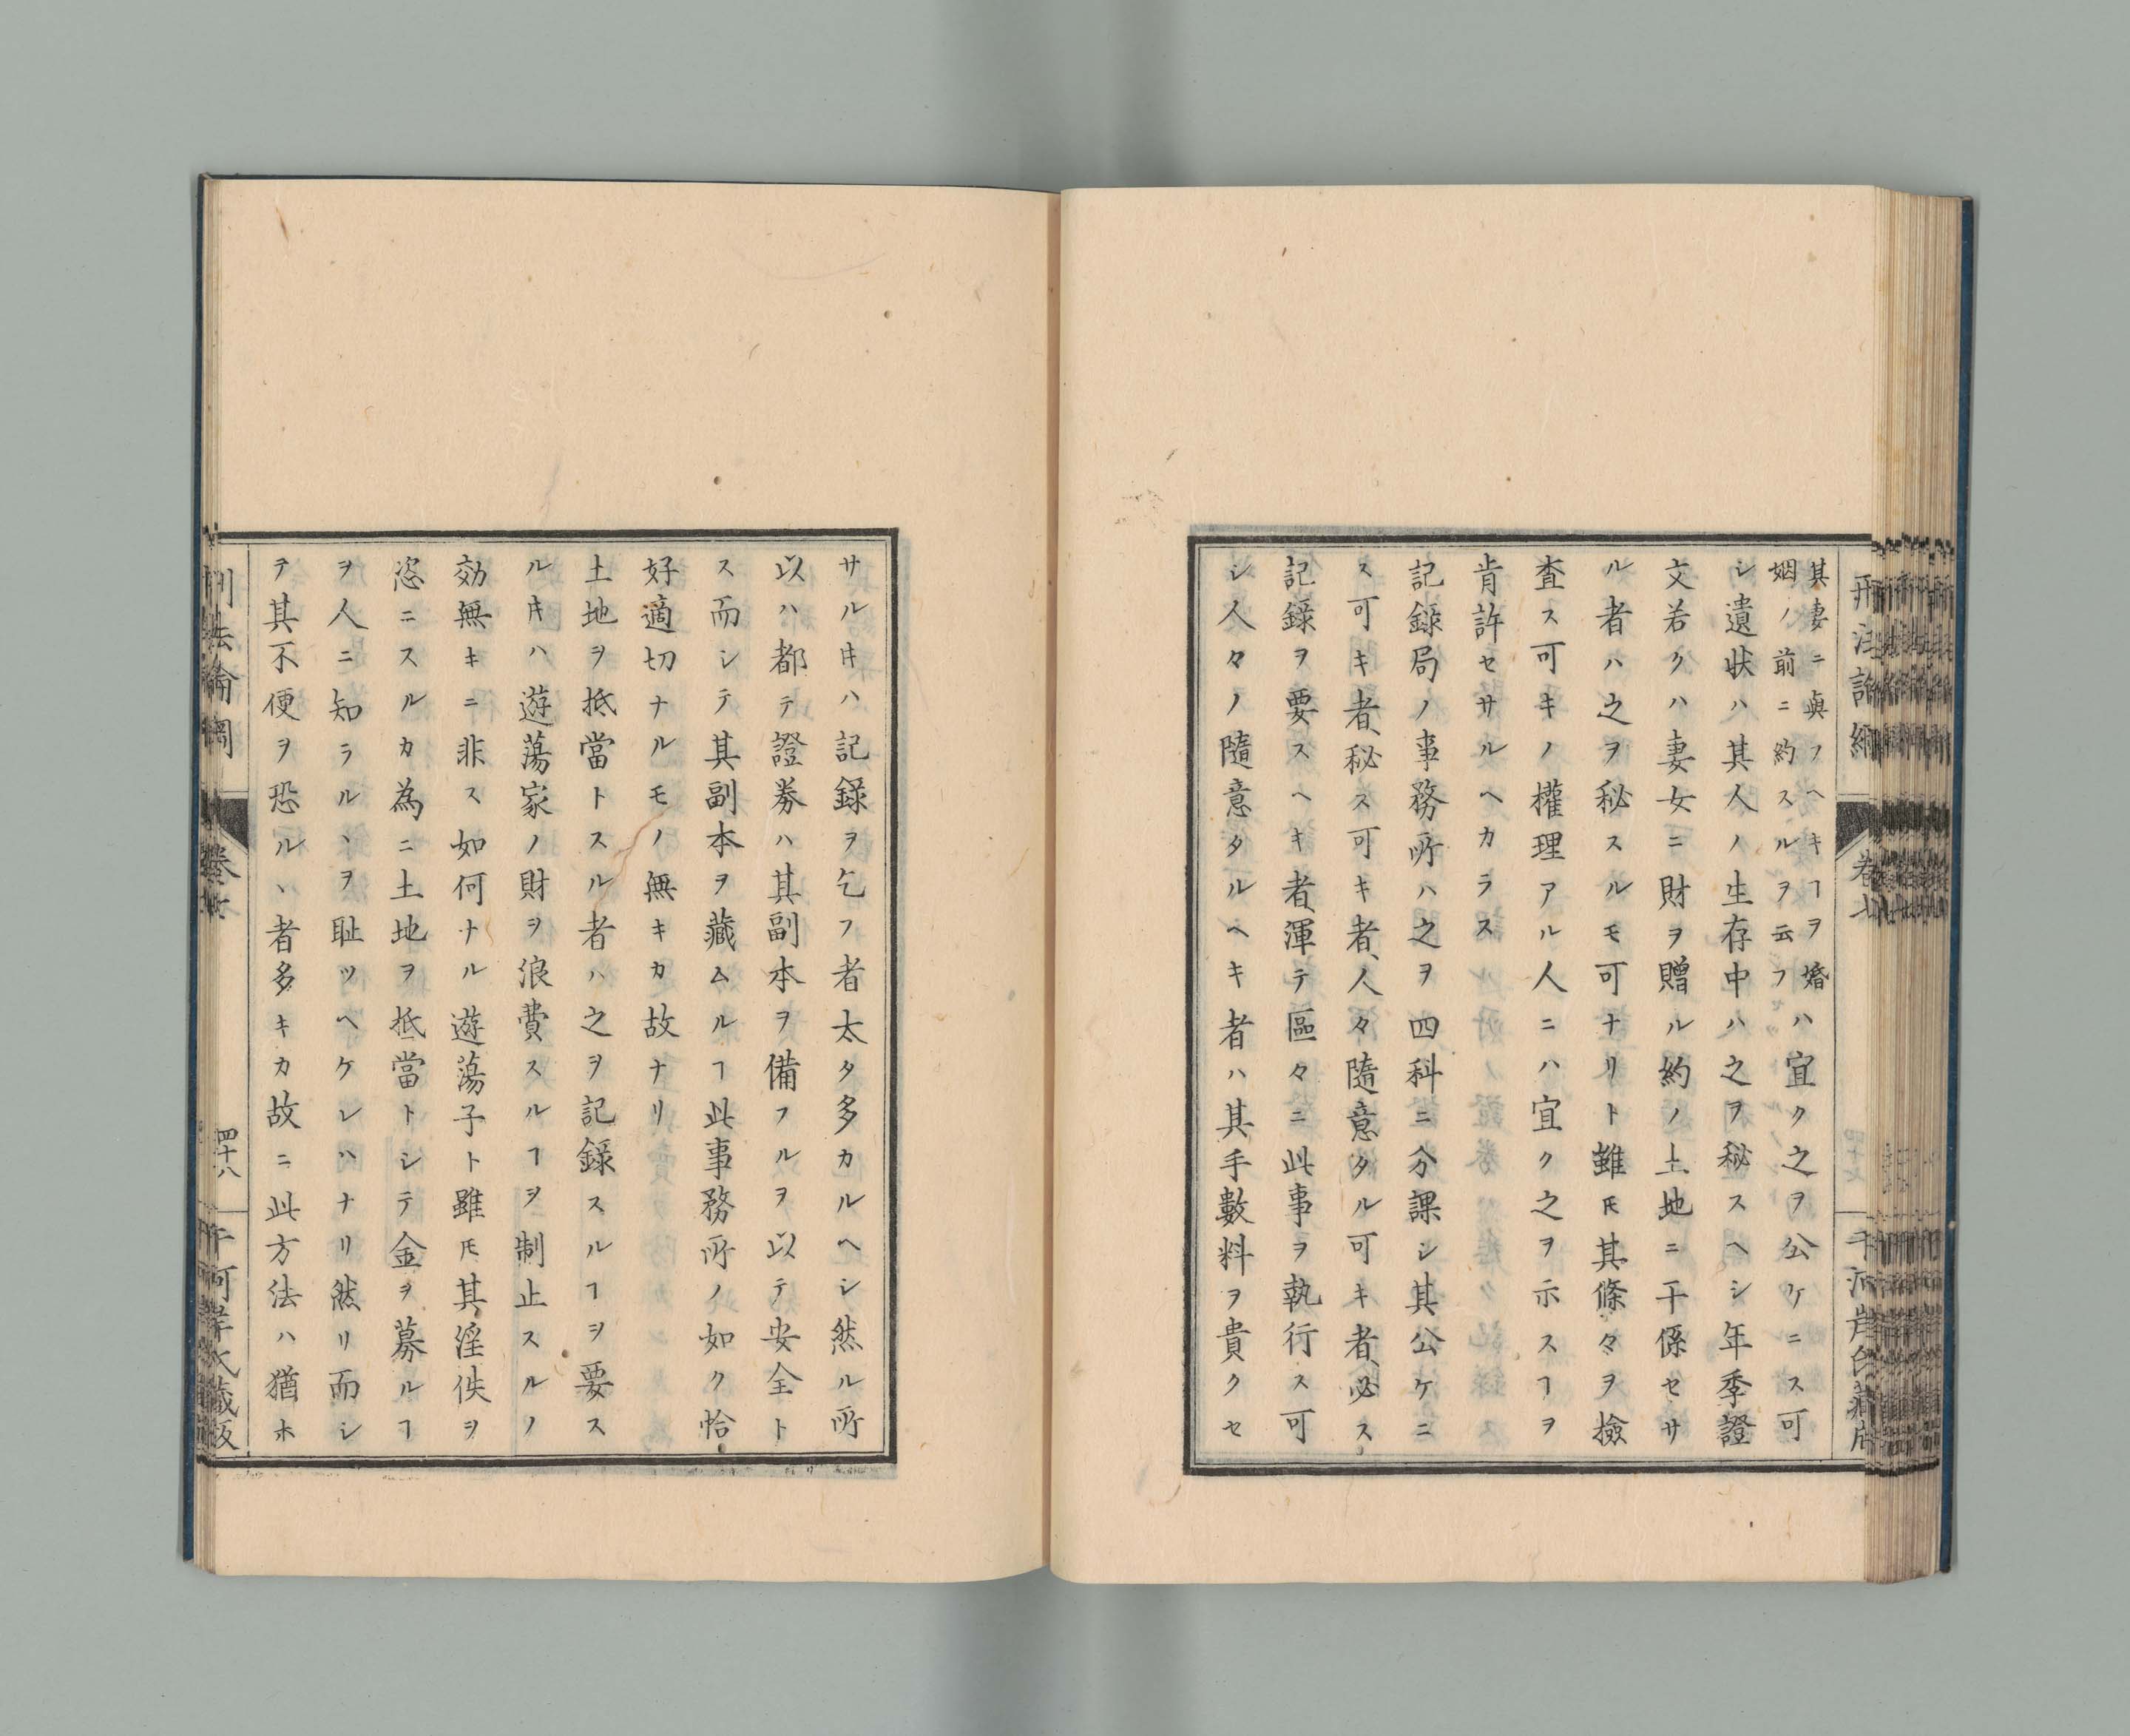 其妻ニ與フヘキヿヲ婚
姻ノ前ニ約スルヲ云フ
ハ宜ク之ヲ公ケニス可
シ遺狀ハ其人ノ生存中ハ之ヲ秘スヘシ年季證
文若クハ妻女ニ財ヲ贈ル約ノ土地ニ干係セサ
ル者ハ之ヲ秘スルモ可ナリト雖𪜈其條々ヲ撿
査ス可キノ權理アル人ニハ宜ク之ヲ示スヿヲ
肯許セサルヘカラス
記錄局ノ事務所ハ之ヲ四科ニ分課シ其公ケニ
ス可キ者秘ス可キ者人々隨意タル可キ者必ス
記錄ヲ要スヘキ者渾テ區々ニ此事ヲ執行ス可
シ人々ノ隨意タルヘキ者ハ其手數料ヲ貴クセ
サル𪜈ハ記錄ヲ乞フ者太タ多カルヘシ然ル所
以ハ都テ證券ハ其副本ヲ備フルヲ以テ安全ト
ス而シテ其副本ヲ藏ムルヿ此事務所ノ如ク恰
好適切ナルモノ無キカ故ナリ
土地ヲ抵當トスル者ハ之ヲ記錄スルヿヲ要ス
ル𪜈ハ遊蕩家ノ財ヲ浪費スルヿヲ制止スルノ
効無キニ非ス如何ナル遊蕩子ト雖𪜈其淫佚ヲ
恣ニスルカ為ニ土地ヲ抵當トシテ金ヲ募ルヿ
ヲ人ニ知ラルヽヲ耻ツヘケレハナリ然リ而シ
テ其不便ヲ恐ルヽ者多キカ故ニ此方法ハ猶ホ
刑法論綱
卷七
四十八